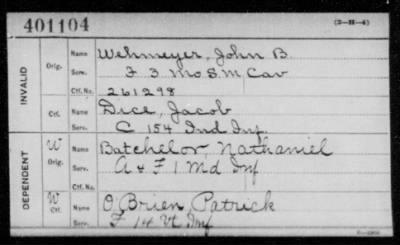 401104 (3-H-4)
INVALID Orig. Name Wehmeyer, John B
Serv. F 3 Mo S. M Cav
Ctf. No. 261298
Ctf. Name Dice, Jacob
Serv. C 154 Ind Inf.
DEPENDENT W Orig. Name Batchelor, Nathaniel
Serv. A & F 1 Md Inf
Ctf. No.
W Ctf. Name O'Brien, Patrick
Serv. F 14 Vt Inf